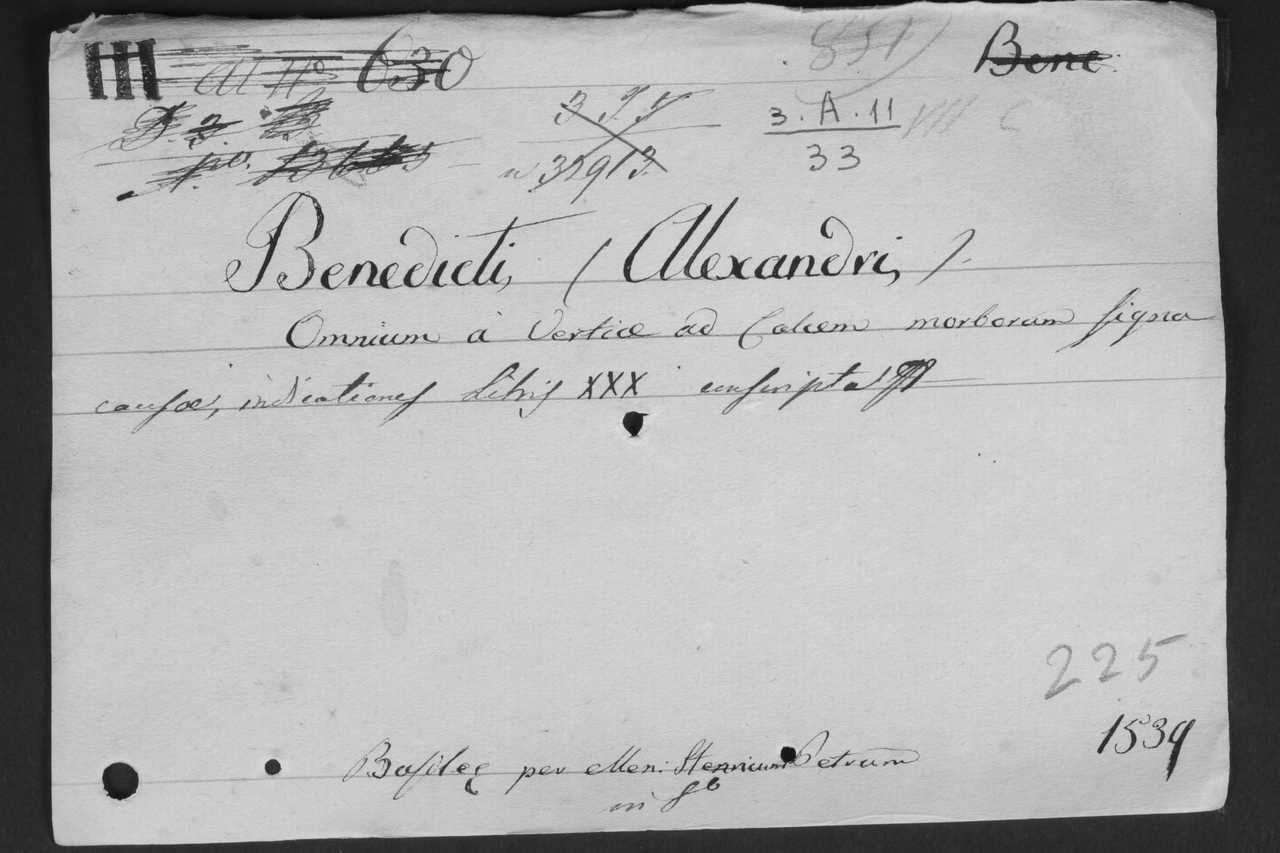 III 630 851 Bene
3. A. 11
33
n 32913
Benedicti, (Alexandri,)
Omnium à Vertice ad Calcem morborum signa
causæ, indicationes Libris XXX conscripta
225
1539
Basileę per Hen: Stenricum Petrum
in 8º